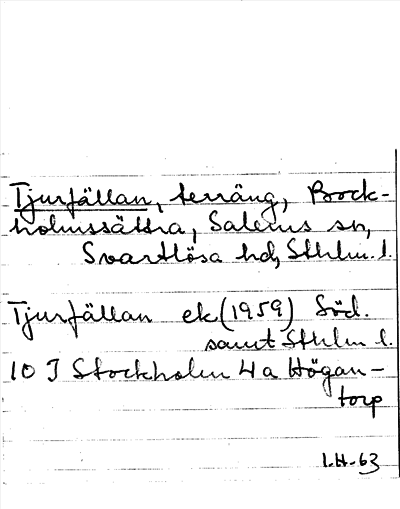 Tjurfällan, terräng, Bock-
holmssättra, Salems sn,
Svartlösa hd, Sthlm. l.
Tjurfällan ek (1959) Söd.
samt Sthlm l.
10 I Stockholm 4 a Högan-
torp
I.H. 63